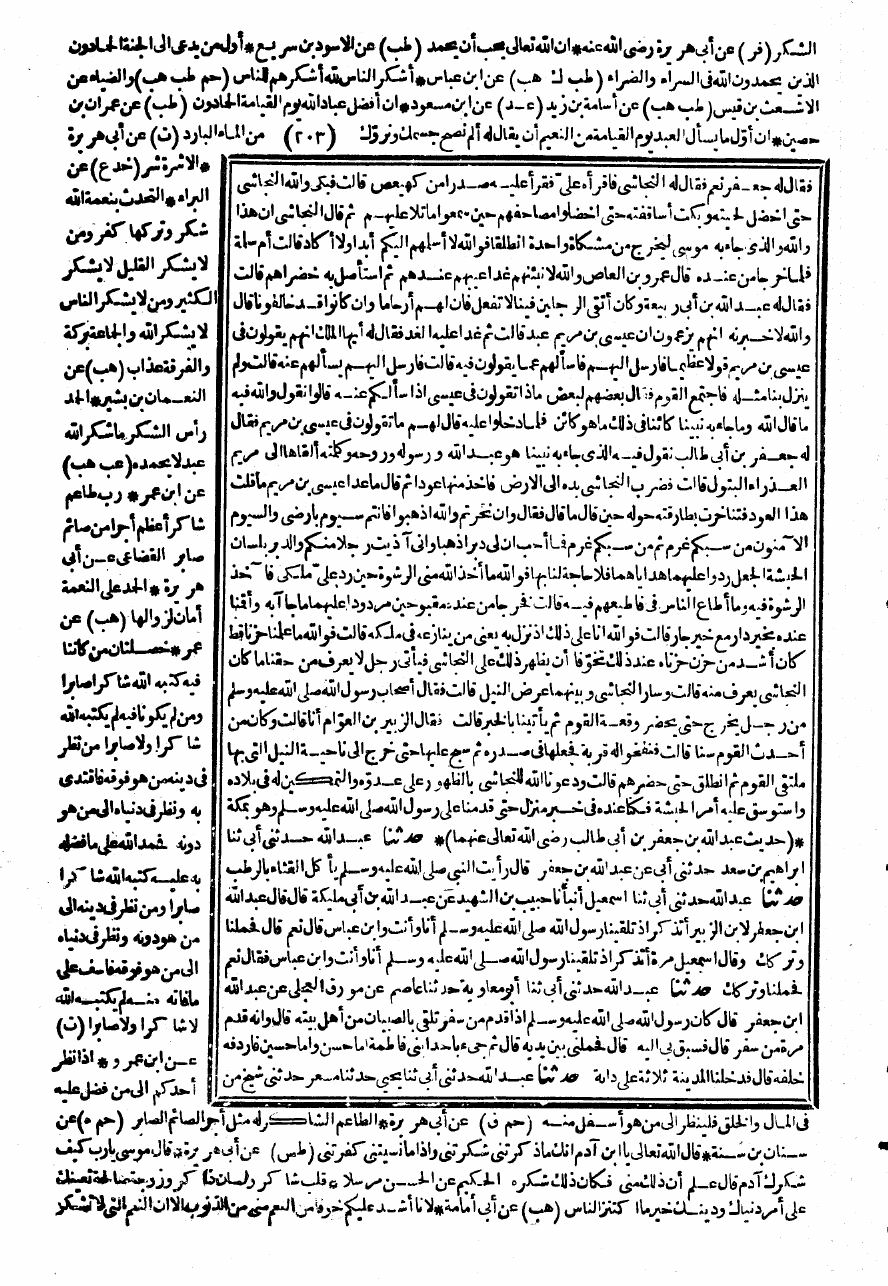 الشكر (فر) عن أبي هريرة رضى الله عنه * ان الله تعالى يحب أن يحمد (طب) عن الاسود بن سريع * أول من يدعى الى الجنة الحمادون
الذين يحمدون الله فى السراء والضراء (طب ك هب) عن ابن عباس * أشكر الناس لله أشكرهم للناس (حم طب هب) والضياء عن
الاشعث بن قيس (طب هب) عن أسامة بن زيد (عد) عن ابن مسعود * ان أفضل عباد الله يوم القيامة الحمادون (طب) عن عمران بن
حصين * ان أول ما يسأل العبد يوم القيامة من النعيم أن يقال له ألم نصح جسمك ونروك (٢٠٣) من الماء البارد (ت) عن أبي هريرة
* الاشرة شر (خدع) عن
البراء * التحدث بنعمة الله
شكر وتركها كفر ومن
لا يشكر القليل لا يشكر
الكثير ومن لا يشكر الناس
لا يشكر الله والجماعة بركة
والفرقة عذاب (هب) عن
النعمان بن بشير * الحمد
رأس الشكر ما شكر الله
عبد لا يحمده (عب هب)
عن ابن عمر * رب طاعم
شاكر أعظم أجرا من صائم
صابر القضاعى عن أبي
هريرة * الحمد على النعمة
أمان لزوالها (هب) عن
عمر * خصلتان من كانتا
فيه كتبه الله شاكرا صابرا
ومن لم يكونا فيه لم يكتبه الله
شاكرا ولا صابرا من نظر
فى دينه من هو فوقه فاقتدى
به ونظر فى دنياه الى من هو
دونه فحمد الله على ما فضله
به عليه كتبه الله شاكرا
صابرا ومن نظر فى دينه الى
من هو دونه ونظر فى دنياه
الى من هو فوقه فاسف على
ما فاته منه لم يكتبه الله
لا شاكرا ولا صابرا (ت)
عن ابن عمرو * اذا نظر
أحدكم الى من فضل عليه
فقال له جعفر نعم فقال له النجاشى فاقرأه على فقرأ عليه صدرا من كهيعص قالت فبكى والله النجاشى
حتى اخضل لحيته وبكت أساقفته حتى اخضلوا مصاحفهم حين سمعوا ما تلا عليهم ثم قال النجاشى ان هذا
والله والذى جاء به موسى ليخرج من مشكاة واحدة انطلقا فوالله لا أسلمهم اليكم أبدا ولا أكاد قالت أم سلمة
فلما خرجا من عنده قال عمرو بن العاص والله لانبئنهم غدا عيبهم عندهم ثم استأصل به خضراهم قالت
فقال له عبد الله بن أبي ربيعة وكان أتقى الرجلين فينا لا تفعل فان لهم أرحاما وان كانوا قد خالفونا قال
والله لاخبرنه انهم يزعمون ان عيسى بن مريم عبد قالت ثم غدا عليه الغد فقال له أيها الملك انهم يقولون فى
عيسى بن مريم قولا عظيما فارسل اليهم فاسألهم عما يقولون فيه قالت فارسل اليهم يسألهم عنه قالت ولم
ينزل بنا مثله فاجتمع القوم فقال بعضهم لبعض ماذا تقولون فى عيسى اذا سألكم عنه قالوا نقول والله فيه
ما قال الله وما جاء به نبينا كائنا فى ذلك ما هو كائن فلما دخلوا عليه قال لهم ما تقولون فى عيسى بن مريم فقال
له جعفر بن أبي طالب نقول فيه الذى جاء به نبينا هو عبد الله ورسوله وروحه وكلمته ألقاها الى مريم
العذراء البتول قالت فضرب النجاشى يده الى الارض فاخذ منها عودا ثم قال ما عدا عيسى بن مريم ما قلت
هذا العود فتناخرت بطارقته حوله حين قال ما قال فقال وان نخرتم والله اذهبوا فانتم سيوم بارضى والسيوم
الآمنون من سبكم غرم ثم من سبكم غرم فما أحب ان لى دبرا ذهبا وانى آذيت رجلا منكم والدبر بلسان
الحبشة الجبل ردوا عليهما هداياهما فلا حاجة لنا بها فوالله ما أخذ الله منى الرشوة حين رد على ملكى فآخذ
الرشوة فيه وما أطاع الناس فى فاطيعهم فيه قالت فخرجا من عنده مقبوحين مردودا عليهما ما جاآ به وأقمنا
عنده بخير دار مع خير جار قالت فوالله انا على ذلك اذ نزل به يعنى من ينازعه فى ملكه قالت فوالله ما علمنا حزنا قط
كان أشد من حزن حزناه عند ذلك تخوفا أن يظهر ذلك على النجاشى فيأتى رجل لا يعرف من حقنا ما كان
النجاشى يعرف منه قالت وسار النجاشى وبينهما عرض النيل قالت فقال أصحاب رسول الله صلى الله عليه وسلم
من رجل يخرج حتى يحضر وقعة القوم ثم يأتينا بالخبر قالت فقال الزبير بن العوام أنا قالت وكان من
أحدث القوم سنا قالت فنفخوا له قربة فجعلها فى صدره ثم سبح عليها حتى خرج الى ناحية النيل التى بها
ملتقى القوم ثم انطلق حتى حضرهم قالت ودعونا الله للنجاشى بالظهور على عدوه والتمكين له فى بلاده
واستوسق عليه أمر الحبشة فكنا عنده فى خير منزل حتى قدمنا على رسول الله صلى الله عليه وسلم وهو بمكة
* (حديث عبد الله بن جعفر بن أبي طالب رضى الله تعالى عنهما) * حدثنا عبد الله حدثنى أبي ثنا
ابراهيم بن سعد حدثنى أبي عن عبد الله بن جعفر قال رأيت النبي صلى الله عليه وسلم يأكل القثاء بالرطب
حدثنا عبد الله حدثنى أبي ثنا اسمعيل أنبأنا حبيب بن الشهيد عن عبد الله بن أبي مليكة قال قال عبد الله
ابن جعفر لابن الزبير أتذكر اذ تلقينا رسول الله صلى الله عليه وسلم أنا وأنت وابن عباس قال نعم قال فحملنا
وتركك وقال اسمعيل مرة أتذكر اذ تلقينا رسول الله صلى الله عليه وسلم أنا وأنت وابن عباس فقال نعم
فحملنا وتركك حدثنا عبد الله حدثنى أبي ثنا أبو معاوية حدثنا عاصم عن مورق العجلى عن عبد الله
ابن جعفر قال كان رسول الله صلى الله عليه وسلم اذا قدم من سفر تلقى بالصبيان من أهل بيته قال وانه قدم
مرة من سفر قال فسبق بى اليه قال فحملنى بين يديه قال ثم جىء باحد ابنى فاطمة اما حسن واما حسين فاردفه
خلفه قال فدخلنا المدينة ثلاثة على دابة حدثنا عبد الله حدثنى أبي ثنا يحيى حدثنا مسعر حدثنى شيخ من
فى المال والخلق فلينظر الى من هو أسفل منه (حم ق) عن أبي هريرة * الطاعم الشاكر له مثل أجر الصائم الصابر (حم ه) عن
سنان بن سنة * قال الله تعالى يا ابن آدم انك ما ذكرتنى شكرتنى واذا ما نسيتنى كفرتنى (طس) عن أبي هريرة * قال موسى يا رب كيف
شكرك آدم قال علم أن ذلك منى فكان ذلك شكره الحكيم عن الحسن مرسلا * قلب شاكر ولسان ذاكر وزوجة صالحة تعينك
على أمر دنياك ودينك خير ما اكتنز الناس (هب) عن أبي أمامة * لانا أشد عليكم خوفا من النعم منى من الذنوب الا ان النعم التى لا تشكر